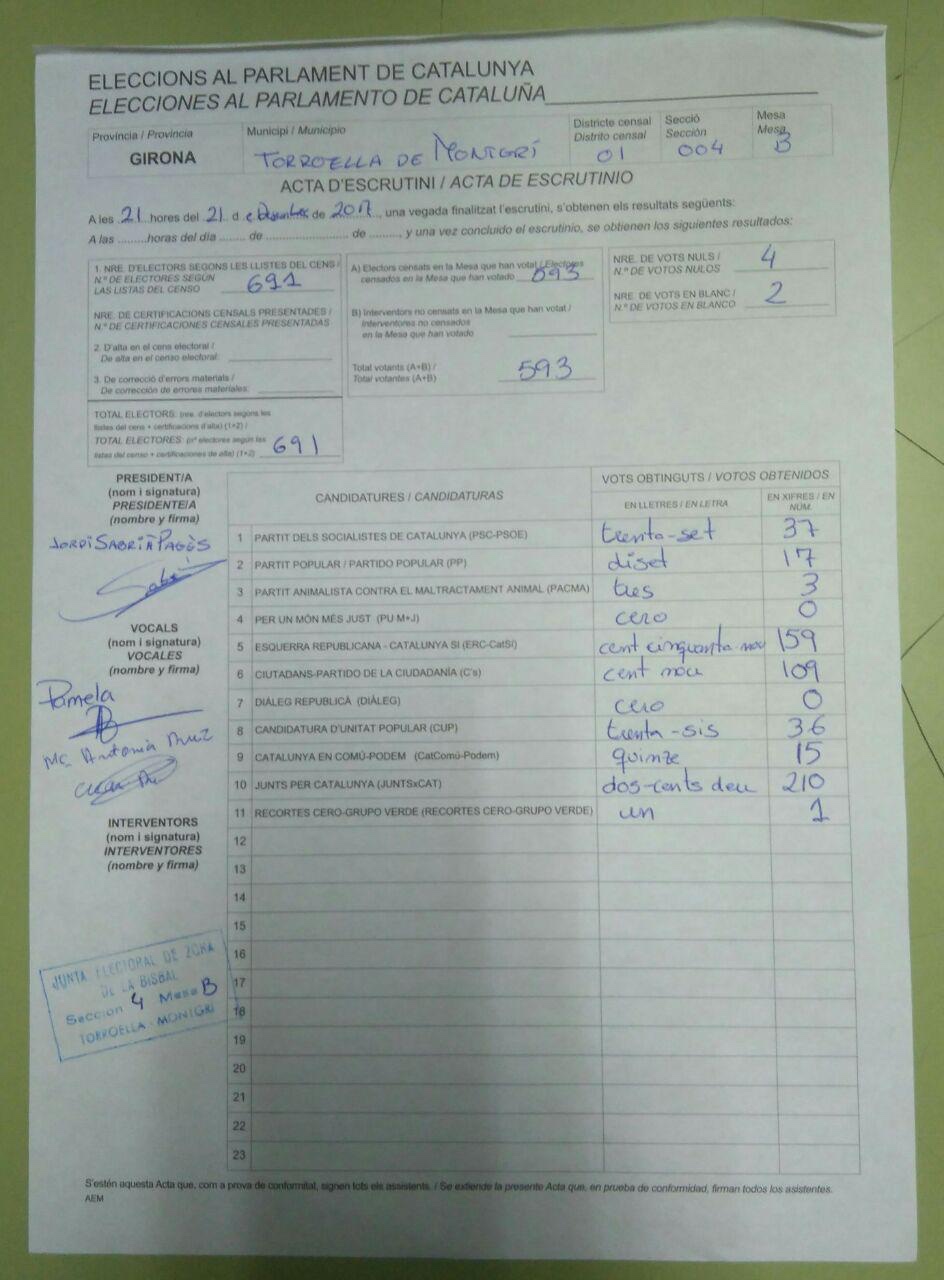 ELECCIONS AL PARLAMENT DE CATALUNYA
ELECCIONES AL PARLAMENTO DE CATALUÑA
Província / Provincia
GIRONA
Municipi / Municipio
TORROELLA DE MONTGRÍ
Districte censal
Distrito censal
01
Secció
Sección
004
Mesa
Mesa
B
ACTA D'ESCRUTINI / ACTA DE ESCRUTINIO
A les 21 hores del 21 d e Desembre de 2017, una vegada finalitzat l'escrutini, s'obtenen els resultats següents:
A las .........horas del día ....... de ...................... de ........, y una vez concluido el escrutinio, se obtienen los siguientes resultados:
1. NRE. D'ELECTORS SEGONS LES LLISTES DEL CENS /
N.º DE ELECTORES SEGÚN
LAS LISTAS DEL CENSO 691
NRE. DE CERTIFICACIONS CENSALS PRESENTADES /
N.º DE CERTIFICACIONES CENSALES PRESENTADAS
2. D'alta en el cens electoral /
De alta en el censo electoral:
3. De correcció d'errors materials /
De corrección de errores materiales:
TOTAL ELECTORS: (nre. d'electors segons les
llistes del cens + certificacions d'alta) (1+2) /
TOTAL ELECTORES: (nº electores según las
listas del censo + certificaciones de alta) (1+2) 691
A) Electors censats en la Mesa que han votat / Electores
censados en la Mesa que han votado 593
B) Interventors no censats en la Mesa que han votat /
Interventores no censados
en la Mesa que han votado
Total votants (A+B) /
Total votantes (A+B) 593
NRE. DE VOTS NULS /
N.º DE VOTOS NULOS 4
NRE. DE VOTS EN BLANC /
N.º DE VOTOS EN BLANCO 2
PRESIDENT/A
(nom i signatura)
PRESIDENTE/A
(nombre y firma)
JORDI SABRIÀ PAGÈS
Sabrià
VOCALS
(nom i signatura)
VOCALES
(nombre y firma)
Pamela
Mª Antonia Ruiz
INTERVENTORS
(nom i signatura)
INTERVENTORES
(nombre y firma)
JUNTA ELECTORAL DE ZONA
DE LA BISBAL
Sección 4 Mesa B
TORROELLA - MONTGRI
CANDIDATURES / CANDIDATURAS
VOTS OBTINGUTS / VOTOS OBTENIDOS
EN LLETRES / EN LETRA
EN XIFRES / EN NÚM.
1 PARTIT DELS SOCIALISTES DE CATALUNYA (PSC-PSOE) trenta-set 37
2 PARTIT POPULAR / PARTIDO POPULAR (PP) diset 17
3 PARTIT ANIMALISTA CONTRA EL MALTRACTAMENT ANIMAL (PACMA) tres 3
4 PER UN MÓN MÉS JUST (PU M+J) cero 0
5 ESQUERRA REPUBLICANA - CATALUNYA SI (ERC-CatSí) cent cinquanta-nou 159
6 CIUTADANS-PARTIDO DE LA CIUDADANÍA (C's) cent nou 109
7 DIÀLEG REPUBLICÀ (DIÀLEG) cero 0
8 CANDIDATURA D'UNITAT POPULAR (CUP) trenta-sis 36
9 CATALUNYA EN COMÚ-PODEM (CatComú-Podem) quinze 15
10 JUNTS PER CATALUNYA (JUNTSxCAT) dos-cents deu 210
11 RECORTES CERO-GRUPO VERDE (RECORTES CERO-GRUPO VERDE) un 1
12
13
14
15
16
17
18
19
20
21
22
23
S'estén aquesta Acta que, com a prova de conformitat, signen tots els assistents. / Se extiende la presente Acta que, en prueba de conformidad, firman todos los asistentes.
AEM